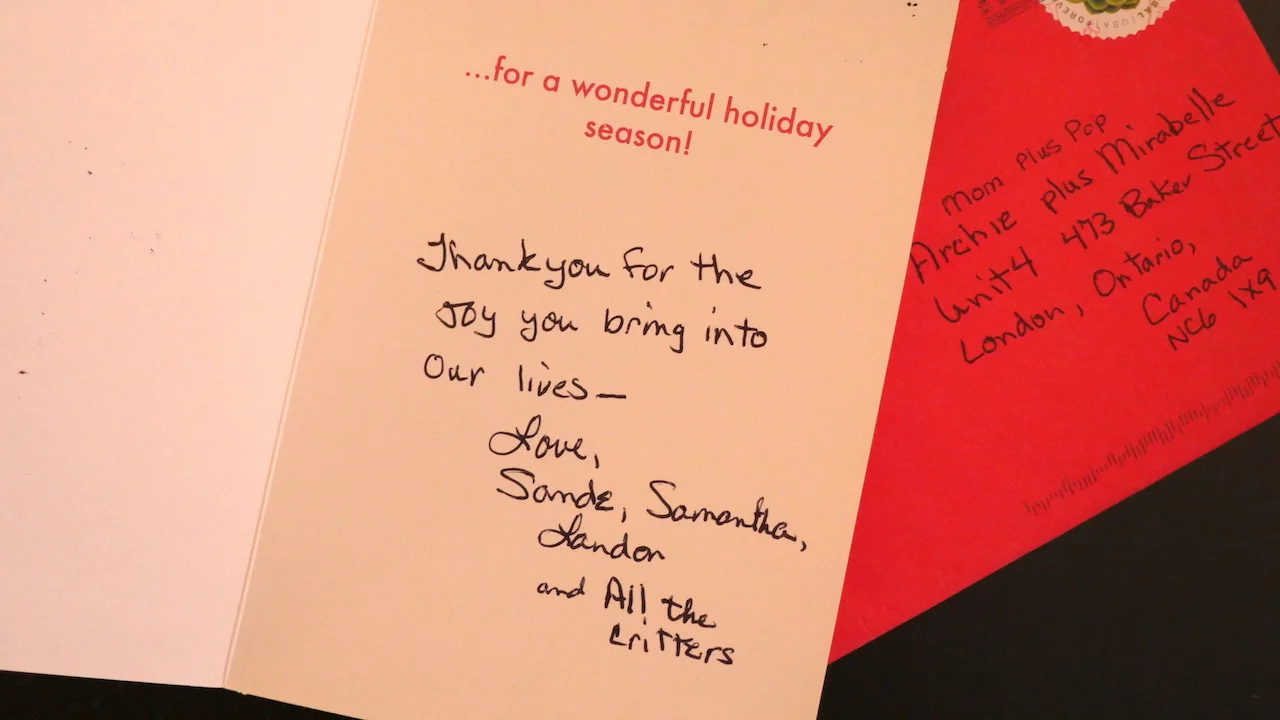 ...for a wonderful holiday
season!
Thankyou for the
Joy you bring into
Our lives—
Love,
Sande, Samantha,
Landon
and All the
Critters
Mom Plus Pop
Archie plus Mirabelle
Unit 4 473 Baker Street
London, Ontario,
Canada
NC6 1X9
USA FOREVER